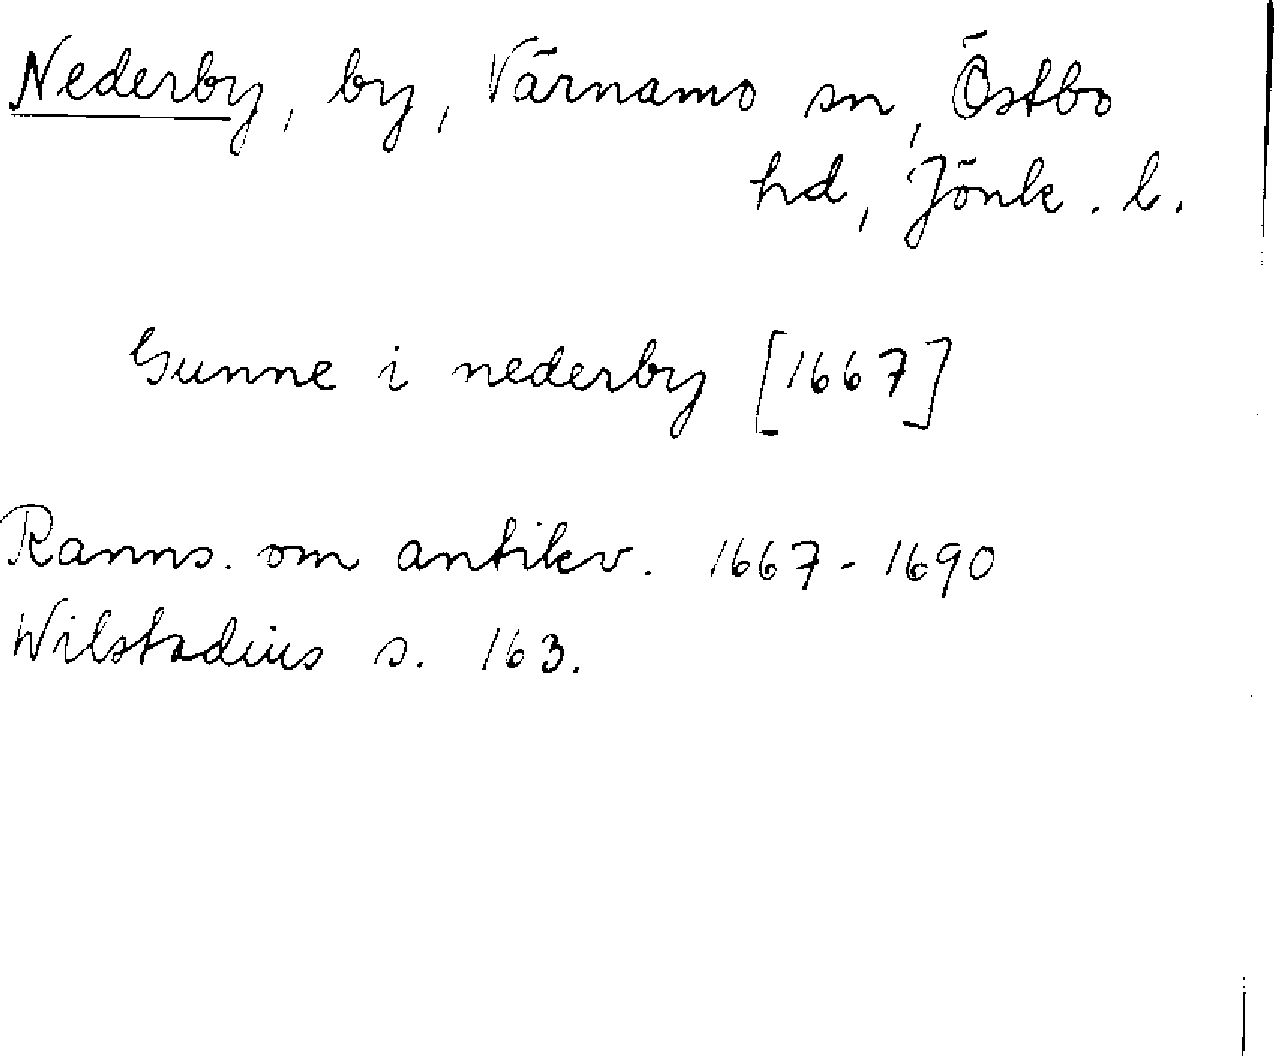 Nederby, by, Värnamo sn, Östbo
hd, Jönk. l.
Gunne i nederby [1667]
Ranns. om antikv. 1667-1690
Wilstadius s. 163.